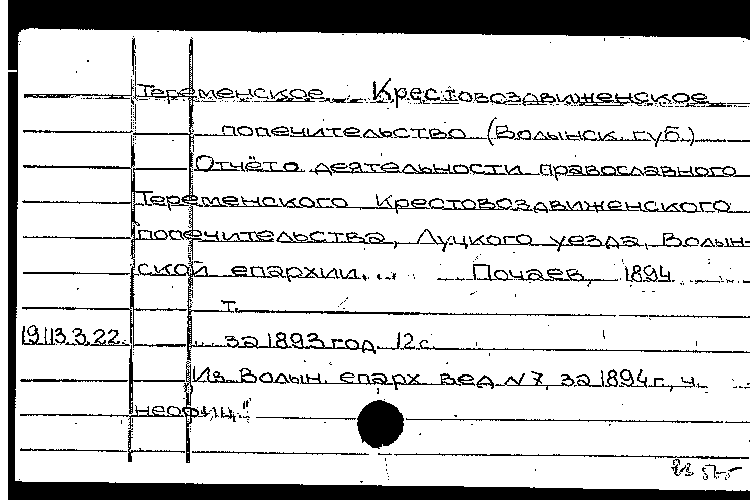 Теременское Крестовоздвиженское
попечительство (Волынск. губ.)
Отчёт о деятельности православного
Теременского Крестовоздвиженского
попечительства, Луцкого уезда, Волын-
ской епархии... Почаев, 1894
т.
19113.3.22. за 1893 год. 12 с.
Из Волын. епарх вед N 7, за 1894 г., ч.
неофиц."